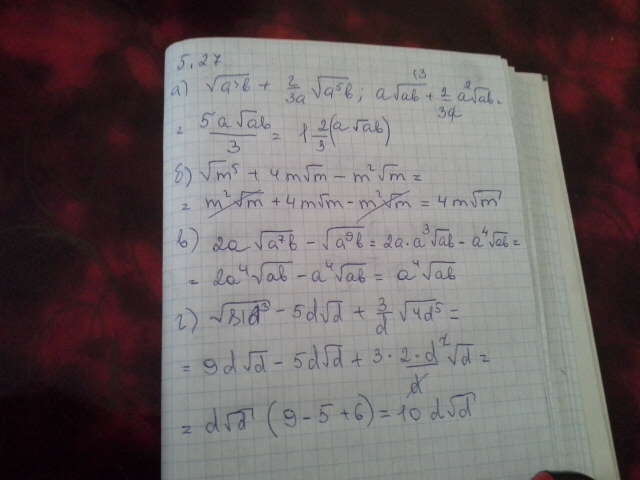 5.27
а) √a³b + 2/3a √a⁵b; a√ab + 2/3a a²√ab =
= 5a√ab/3 = 1 2/3 (a√ab)
б) √m⁵ + 4m√m - m²√m =
= m²√m + 4m√m - m²√m = 4m√m
в) 2a√a⁷b - √a⁹b = 2a·a³√ab - a⁴√ab =
= 2a⁴√ab - a⁴√ab = a⁴√ab
г) √81d³ - 5d√d + 3/d √4d⁵ =
= 9d√d - 5d√d + 3·2·d²/d √d =
= d√d (9 - 5 + 6) = 10d√d